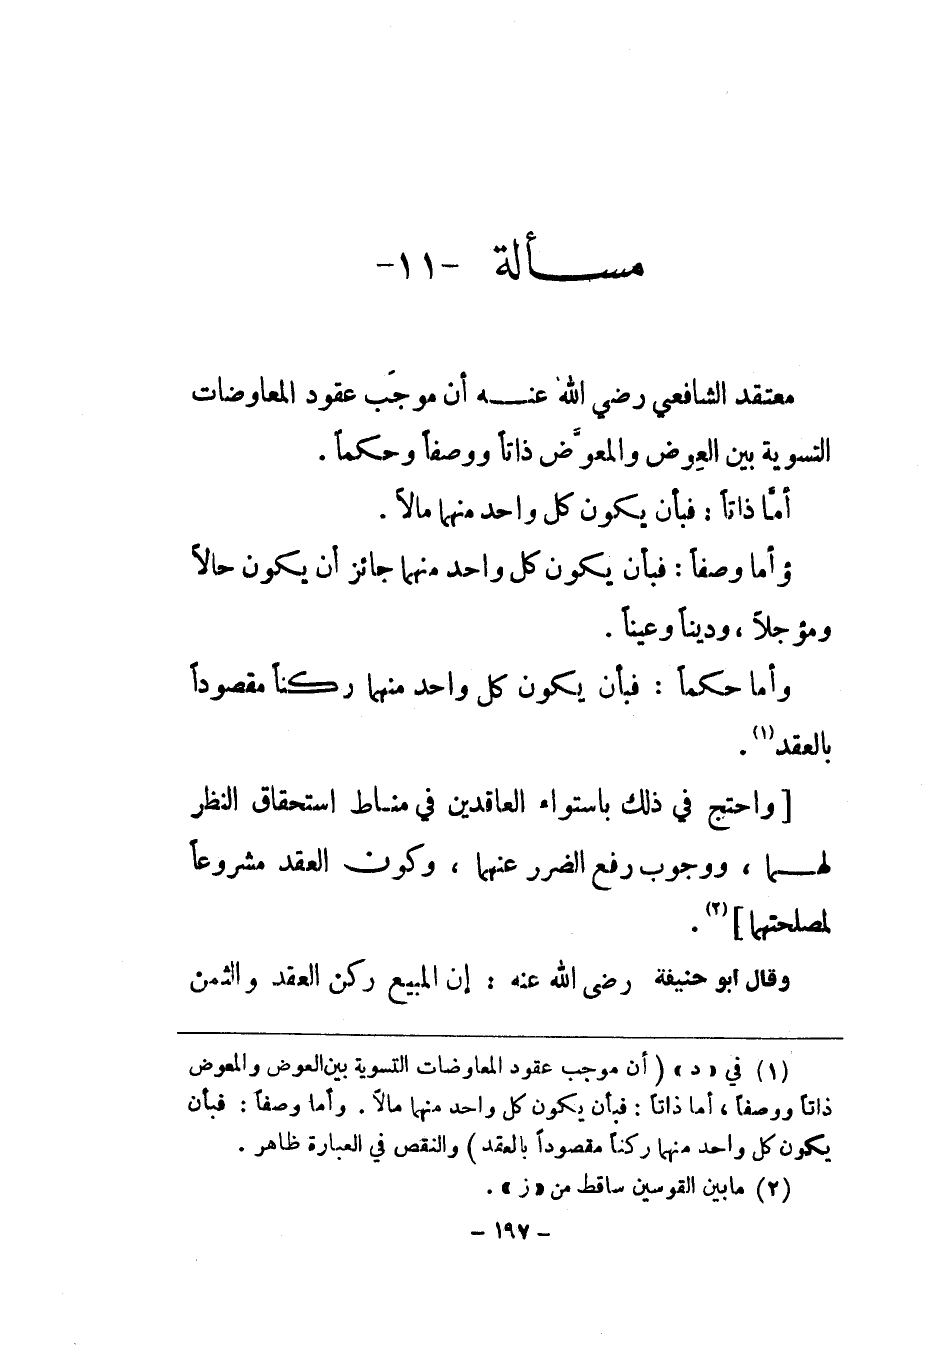 مسألة -١١-
معتقد الشافعي رضي الله عنه أن موجَب عقود المعاوضات
التسوية بين العِوض والمعوَّض ذاتاً ووصفاً وحكماً .
أمَّا ذاتاً : فبأن يكون كل واحد منهما مالاً .
وأما وصفاً : فبأن يكون كل واحد منهما جائز أن يكون حالاً
ومؤجلاً ، وديناً وعيناً .
وأما حكماً : فبأن يكون كل واحد منهما ركناً مقصوداً
بالعقد(١) .
[ واحتج في ذلك باستواء العاقدين في مناط استحقاق النظر
لهما ، ووجوب رفع الضرر عنهما ، وكون العقد مشروعاً
لمصلحتهما ](٢) .
وقال ابو حنيفة رضى الله عنه : إن المبيع ركن العقد والثمن
(١) في «د» ( أن موجب عقود المعاوضات التسوية بين العوض والمعوض
ذاتاً ووصفاً ، أما ذاتاً : فبأن يكون كل واحد منهما مالاً . وأما وصفاً : فبأن
يكون كل واحد منهما ركناً مقصوداً بالعقد ) والنقص في العبارة ظاهر .
(٢) مابين القوسين ساقط من «ز» .
- ١٩٧ -